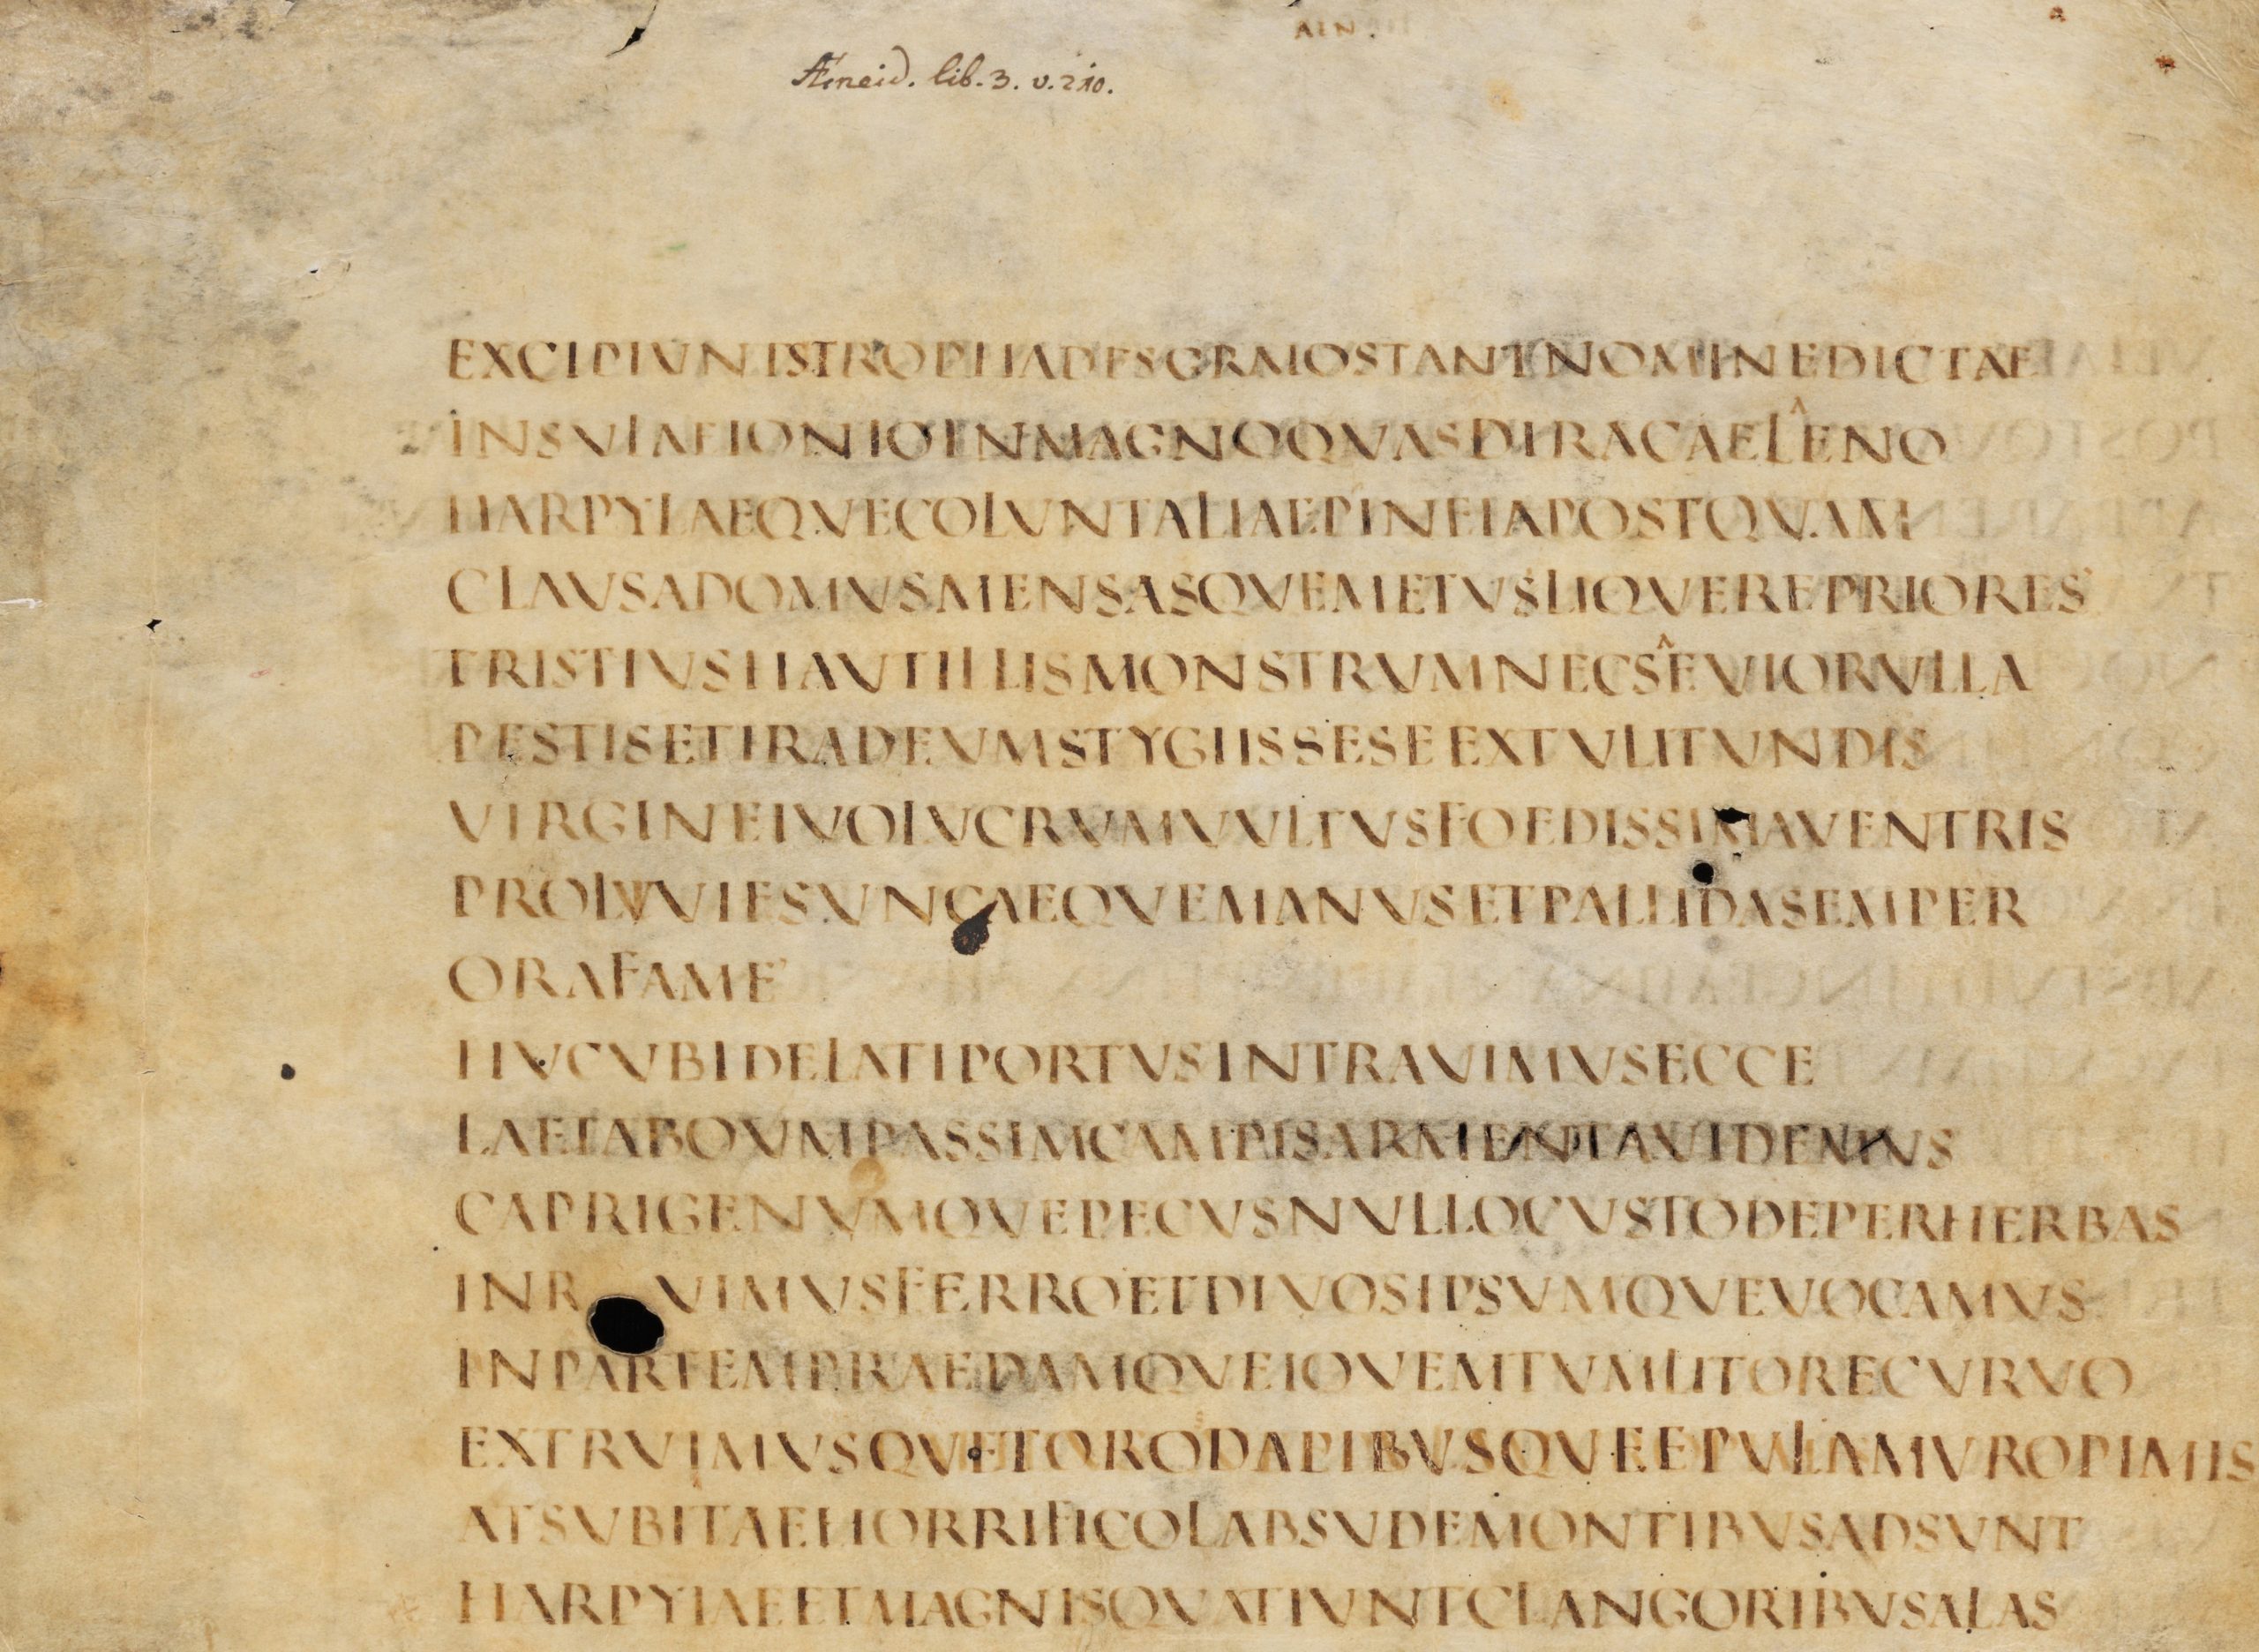 AEN.
Æneid. lib. 3. v. 210.
EXCIPIVNTSTROPHADESGRAIOSTANTNOMINEDICTAE
INSVLAEIONIOINMAGNOQVASDIRACAELENO
HARPYIAEQVECOLVNTALIAEPINEIAPOSTQVAM
CLAVSADOMVSMENSASQVEMETVSLIQVEREPRIORES
TRISTIVSHAVTILLISMONSTRVMNECSEVIORVLLA
PESTISETIRADEVMSTYGIISSESEEXTVLITVNDIS
VIRGINEIVOLVCRVMVVLTVSFOEDISSIMAVENTRIS
PROLVVIESVNCAEQVEMANVSETPALLIDASEMPER
ORAFAME
HVCVBIDELATIPORTVSINTRAVIMVSECCE
LAETABOVMPASSIMCAMPISARMENTAVIDEMVS
CAPRIGENVMQVEPECVSNVLLOCVSTODEPERHERBAS
INR VIMVSFERROETDIVOSIPSVMQVEVOCAMVS
INPARTEMPRAEDAMQVEIOVEMTVMLITORECVRVO
EXTRVIMVSQVETORODAPIBVSQVEEPVLAMVROPIMIS
ATSVBITAEHORRIFICOLABSVDEMONTIBVSADSVNT
HARPYIAEETMAGNISQVATIVNTCLANGORIBVSALAS